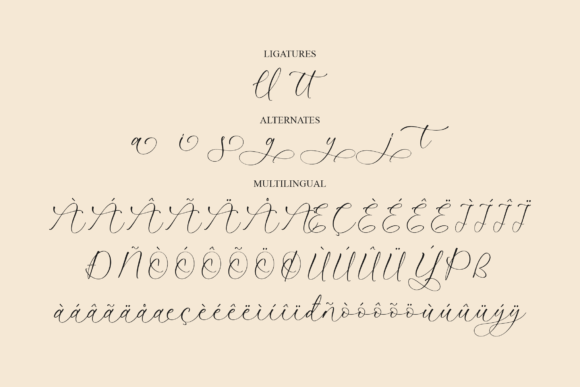 LIGATURES
ll tt
ALTERNATES
a i s g y j t
MULTILINGUAL
ÀÁÂÃÄÅÆÇÈÉÊËÌÍÎÏ
ÐÑÒÓÔÕÖØÙÚÛÜÝÞß
àáâãäåæçèéêëìíîïđñòóôõöùúûüýÿ